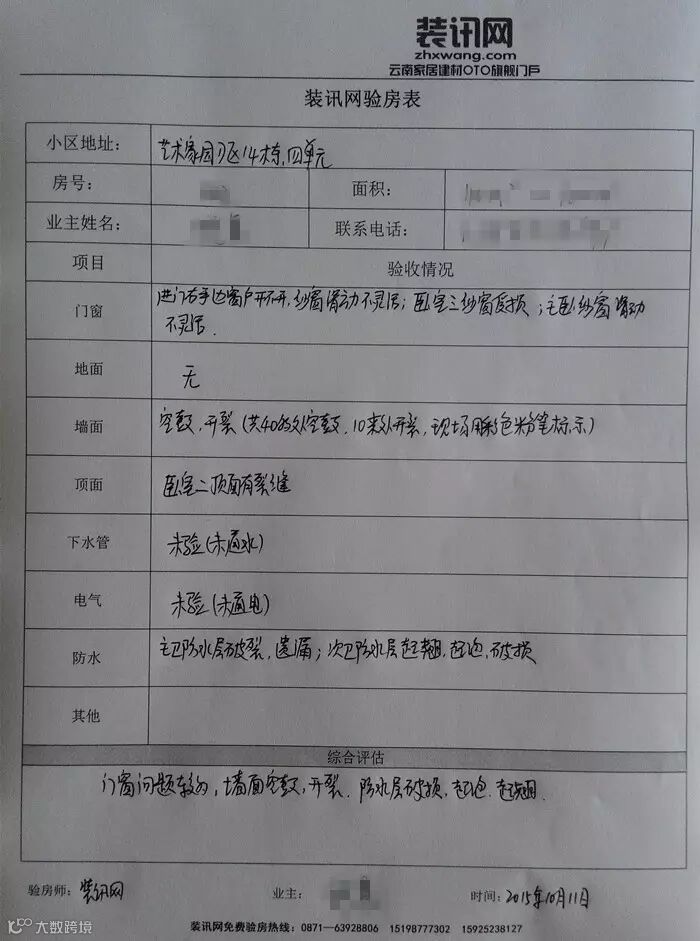 装讯网
zhxwang.com
云南家居建材OTO旗舰门户
装讯网验房表
小区地址： 艺术家园J区14栋,四单元
房号： 面积：
业主姓名： 联系电话：
项目 验收情况
门窗 进门右手边窗户开不开,纱窗滑动不灵活；卧室三纱窗破损；主卧纱窗滑动
不灵活.
地面 无
墙面 空鼓,开裂(共40多处空鼓,10来处开裂,现场用彩色粉笔标示)
顶面 卧室二顶面有裂缝
下水管 未验(未通水)
电气 未验(未通电)
防水 主卫防水层破裂,遗漏；次卫防水层起翘,起泡,破损
其他
综合评估
门窗问题较多,墙面空鼓,开裂.防水层破损,起泡,起翘.
验房师：装讯网 业主： 时间：2015年10月11日
装讯网免费验房热线：0871—63928806 15198777302 15925238127
大数跨境